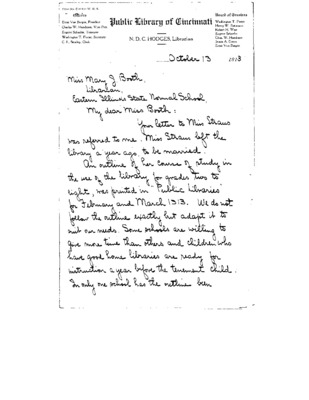 Public Library of Cincinnati
Board of Trustees
N. D. C. HODGES, Librarian
October 13 1913
Miss Mary J Booth,
Librarian,
Eastern Illinois State Normal School
My dear Miss Booth:
Your letter to Miss Straus
was referred to me. Miss Straus left the
library a year ago, to be married.
An outline of her course of study in
the use of the library for grades two to
eight, was printed in "Public Libraries"
for February and March, 1913. We do not
follow the outline exactly but adapt it to
suit our needs. Some schools are willing to
give more time than others and children who
have good home libraries are ready for
instruction a year before the tenement child.
In only one school has the outline been